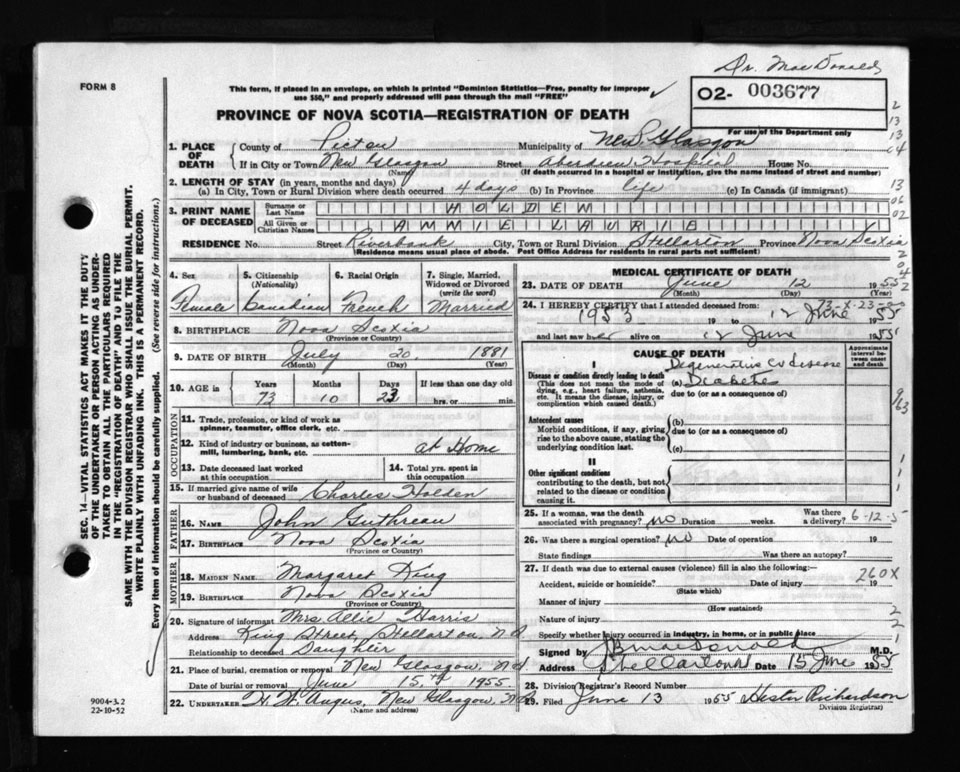 Dr. MacDonald
FORM 8
This form, if placed in an envelope, on which is printed "Dominion Statistics—Free, penalty for improper
use $50," and properly addressed will pass through the mail "FREE"
O2- 003677
For use of the Department only
PROVINCE OF NOVA SCOTIA—REGISTRATION OF DEATH
1. PLACE OF DEATH
County of Pictou Municipality of New Glasgow
If in City or Town New Glasgow Street Aberdeen Hospital House No.
(Name) (If death occurred in a hospital or institution, give the name instead of street and number)
2. LENGTH OF STAY (in years, months and days)
(a) In City, Town or Rural Division where death occurred 4 days (b) In Province life (c) In Canada (if immigrant)
3. PRINT NAME OF DECEASED
Surname or Last Name HOLDEM
All Given or Christian Names AMMIE LAURIE
RESIDENCE No. Street Riverbank City, Town or Rural Division Stellarton Province Nova Scotia
(Residence means usual place of abode. Post Office Address for residents in rural parts not sufficient)
4. Sex Female
5. Citizenship (Nationality) Canadian
6. Racial Origin French
7. Single, Married, Widowed or Divorced (write the word) Married
8. BIRTHPLACE Nova Scotia
(Province or Country)
9. DATE OF BIRTH July 20 1881
(Month) (Day) (Year)
10. AGE in Years Months Days If less than one day old
73 10 23 hrs. or min.
OCCUPATION
11. Trade, profession, or kind of work as
spinner, teamster, office clerk, etc.
12. Kind of industry or business, as cotton-
mill, lumbering, bank, etc. at Home
13. Date deceased last worked
at this occupation
14. Total yrs. spent in
this occupation
15. If married give name of wife
or husband of deceased Charles Holden
FATHER
16. NAME John Guthreau
17. BIRTHPLACE Nova Scotia
(Province or Country)
MOTHER
18. MAIDEN NAME Margaret King
19. BIRTHPLACE Nova Scotia
(Province or Country)
20. Signature of informant Mrs Allie Harris
Address King Street, Stellarton, N.S.
Relationship to deceased Daughter
21. Place of burial, cremation or removal New Glasgow, N.S.
Date of burial or removal June 15th 1955
22. UNDERTAKER H. W. Angus, New Glasgow, N.S.
(Name and address)
MEDICAL CERTIFICATE OF DEATH
23. DATE OF DEATH June 12 1955
(Month) (Day) (Year)
24. I HEREBY CERTIFY that I attended deceased from: 73-X-23-
1953 19 to 12 June 1955
and last saw her alive on 12 June 1955
CAUSE OF DEATH
Approximate interval between onset and death
I
Disease or condition directly leading to death
(This does not mean the mode of
dying, e.g., heart failure, asthenia,
etc. It means the disease, injury, or
complication which caused death.)
Degenerative cv disease
(a) Diabetes
due to (or as a consequence of)
Antecedent causes
Morbid conditions, if any, giving
rise to the above cause, stating the
underlying condition last.
(b)
due to (or as a consequence of)
(c)
II
Other significant conditions
contributing to the death, but not
related to the disease or condition
causing it.
25. If a woman, was the death
associated with pregnancy? NO Duration weeks. Was there
a delivery? 6-12-5
26. Was there a surgical operation? NO Date of operation 19
State findings Was there an autopsy?
27. If death was due to external causes (violence) fill in also the following:—
260X
Accident, suicide or homicide? Date of injury 19
(State which)
Manner of injury
(How sustained)
Nature of injury
Specify whether injury occurred in industry, in home, or in public place
Signed by M.D.
Address Stellarton Date 15 June 1955
28. Division Registrar's Record Number
29. Filed June 13 1955 Hester Richardson
Division Registrar
SEC. 14—VITAL STATISTICS ACT MAKES IT THE DUTY
OF THE UNDERTAKER OR PERSON ACTING AS UNDER-
TAKER TO OBTAIN ALL THE PARTICULARS REQUIRED
IN THE "REGISTRATION OF DEATH" AND TO FILE THE
SAME WITH THE DIVISION REGISTRAR WHO SHALL ISSUE THE BURIAL PERMIT.
WRITE PLAINLY WITH UNFADING INK. THIS IS A PERMANENT RECORD.
Every item of information should be carefully supplied. (See reverse side for instructions.)
9004-3.2
22-10-52
2
13
13
04
13
06
02
2
04
2
9
163
1
1
2
2
1